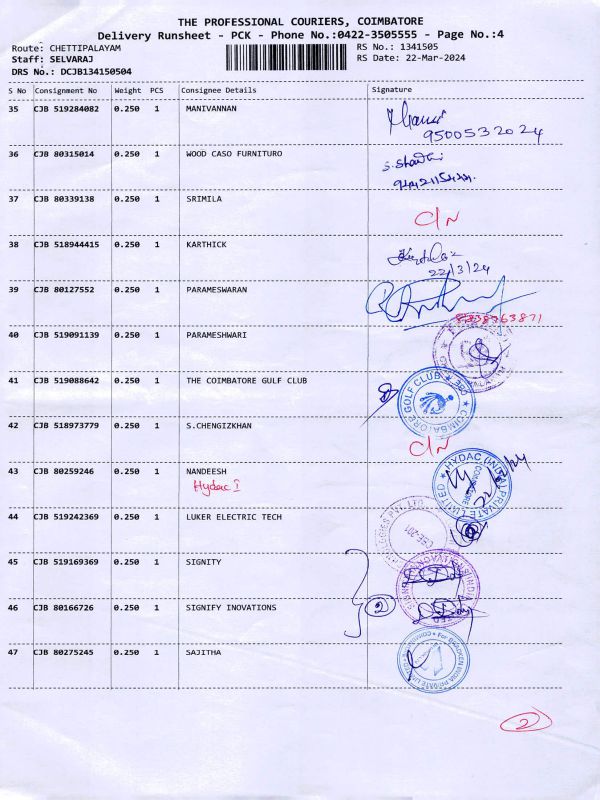 THE PROFESSIONAL COURIERS, COIMBATORE
Delivery Runsheet - PCK - Phone No.:0422-3505555 - Page No.:4
Route: CHETTIPALAYAM RS No.: 1341505
Staff: SELVARAJ RS Date: 22-Mar-2024
DRS No.: DCJB134150504
S No Consignment No Weight PCS Consignee Details Signature
35 CJB 519284082 0.250 1 MANIVANNAN
9500532024
36 CJB 80315014 0.250 1 WOOD CASO FURNITURO
37 CJB 80339138 0.250 1 SRIMILA
C/N
38 CJB 518944415 0.250 1 KARTHICK
22/3/24
39 CJB 80127552 0.250 1 PARAMESWARAN
8838763871
40 CJB 519091139 0.250 1 PARAMESHWARI
41 CJB 519088642 0.250 1 THE COIMBATORE GULF CLUB
COIMBATORE GOLF CLUB
42 CJB 518973779 0.250 1 S.CHENGIZKHAN
C/N
43 CJB 80259246 0.250 1 NANDEESH
Hydac I
HYDAC (INDIA) PRIVATE LIMITED
44 CJB 519242369 0.250 1 LUKER ELECTRIC TECH
45 CJB 519169369 0.250 1 SIGNITY
46 CJB 80166726 0.250 1 SIGNIFY INOVATIONS
2
47 CJB 80275245 0.250 1 SAJITHA
2